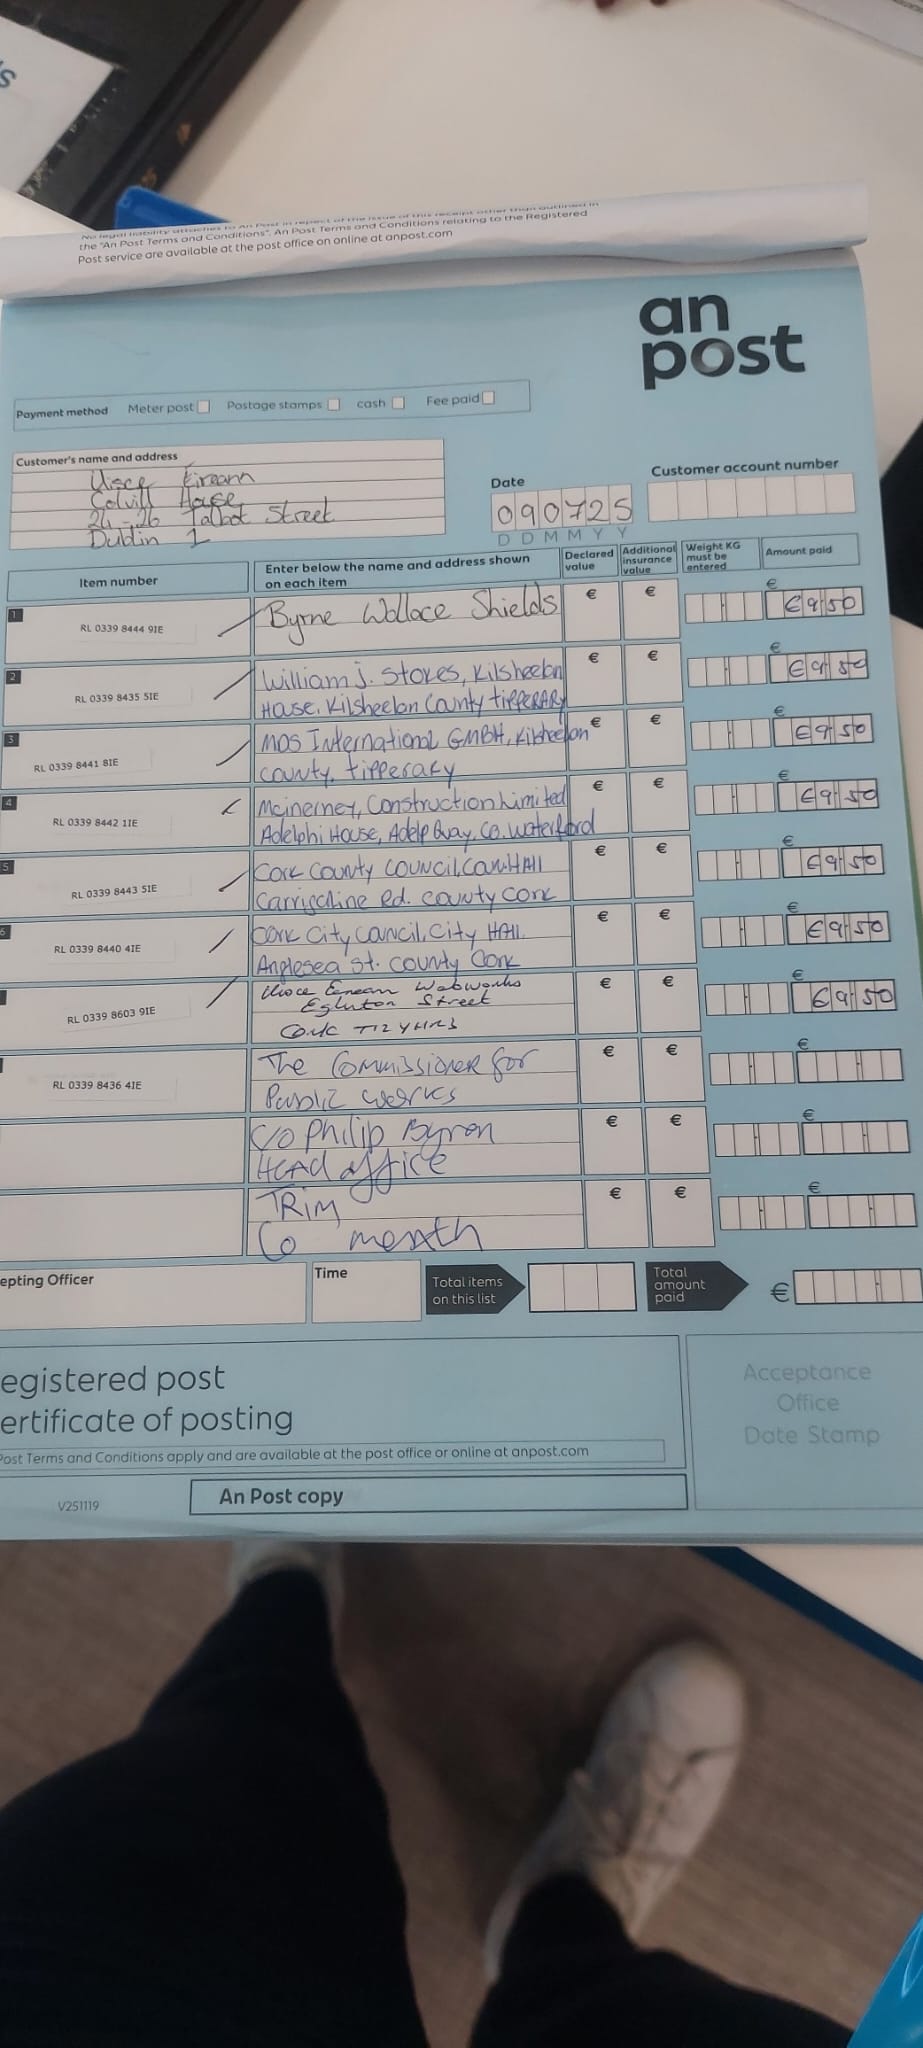 s
No legal liability attaches to An Post in respect of the issue of this receipt other than outlined in
the "An Post Terms and Conditions". An Post Terms and Conditions relating to the Registered
Post service are available at the post office on online at anpost.com
an
post
Payment method Meter post Postage stamps cash Fee paid
Customer's name and address
Uisce Éireann
Colvill House
24-26 Talbot Street
Dublin 1
Date
090725
D D M M Y Y
Customer account number
Item number
Enter below the name and address shown
on each item
Declared
value
Additional
insurance
value
Weight KG
must be
entered
Amount paid
1 RL 0339 8444 9IE Byrne Wallace Shields € € € €9.50
2 RL 0339 8435 5IE William J. Stokes, Kilsheelan € € € €9.50
House, Kilsheelan County TIPPERARY
3 RL 0339 8441 8IE MOS International GMBH, Kilsheelan € € € €9.50
county, tipperary
4 RL 0339 8442 1IE Mcinerney, Construction Limited € € € €9.50
Adelphi House, Adelp Quay, Co. Waterford
5 RL 0339 8443 5IE Cork County Council, Co. Hall € € € €9.50
Carrigaline Rd. County Cork
6 RL 0339 8440 4IE Cork City Council, City Hall € € € €9.50
Anglesea St. County Cork
RL 0339 8603 9IE Webworks € € € €9.50
Eglinton Street
Cork
RL 0339 8436 4IE The Commissioner for € € €
Public Works
C/O Philip Byron € € €
Head office
TRIM € € €
Co meath
epting Officer
Time
Total items
on this list
Total
amount
paid
€
egistered post
ertificate of posting
Post Terms and Conditions apply and are available at the post office or online at anpost.com
Acceptance
Office
Date Stamp
V251119
An Post copy